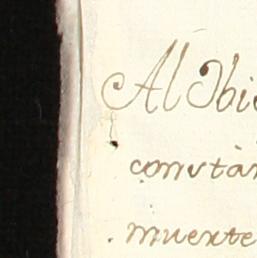 Al Obi
constàn
muerte